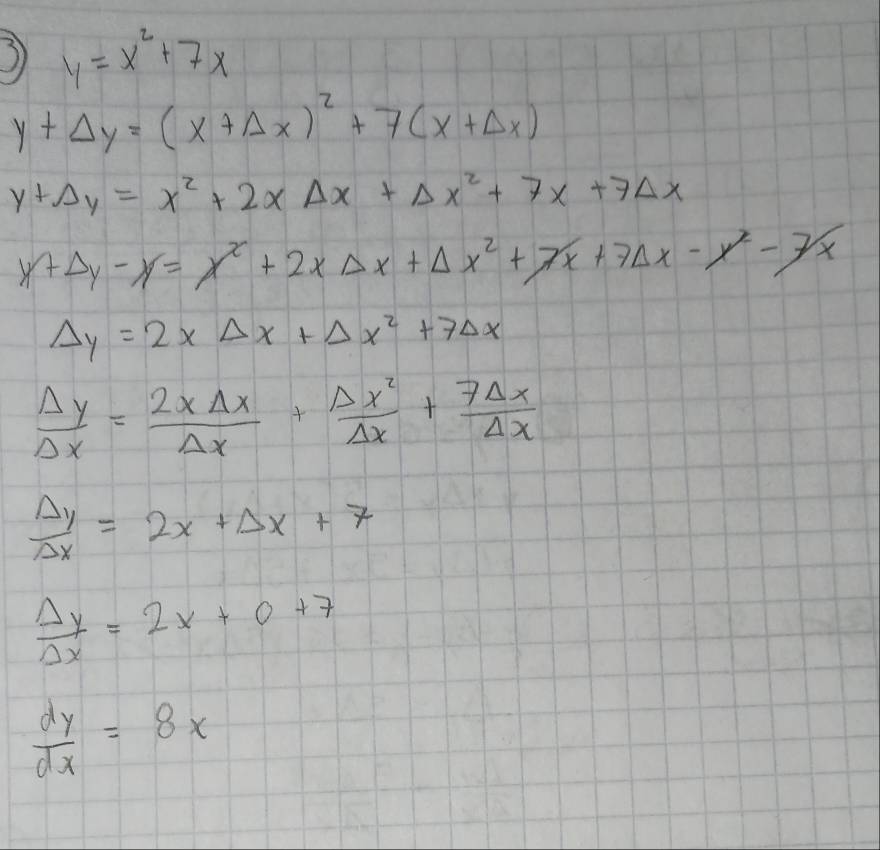 3) y = x² + 7x
y + Δy = (x + Δx)² + 7(x + Δx)
y + Δy = x² + 2x Δx + Δx² + 7x + 7Δx
y + Δy - y = x² + 2x Δx + Δx² + 7x + 7Δx - x² - 7x
Δy = 2x Δx + Δx² + 7Δx
Δy/Δx = 2x Δx/Δx + Δx²/Δx + 7Δx/Δx
Δy/Δx = 2x + Δx + 7
Δy/Δx = 2x + 0 + 7
dy/dx = 8x